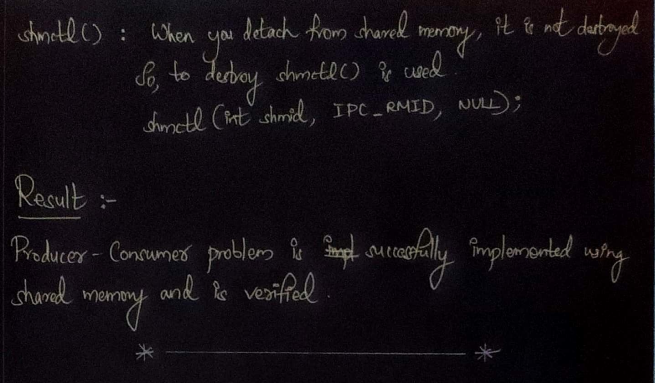 shmctl() : When you detach from shared memory, it is not destroyed
So, to destroy shmctl() is used.
shmctl (int shmid, IPC_RMID, NULL);
Result :-
Producer-Consumer problem is successfully implemented using
shared memory and is verified.